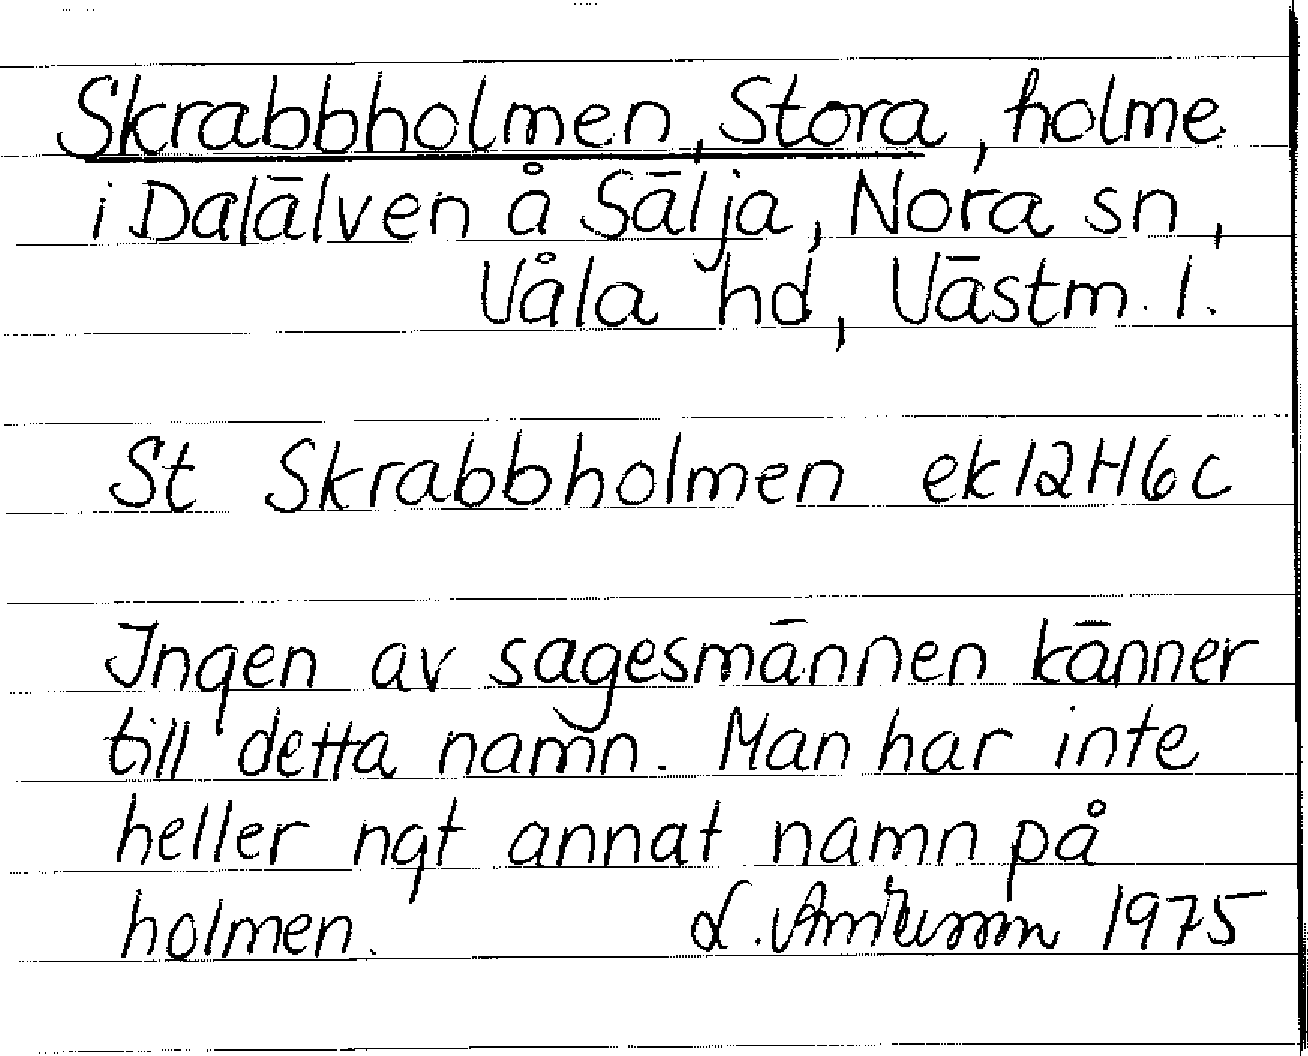 Skrabbholmen, Stora, holme
i Dalälven å Sälja, Nora sn,
Våla hd, Västm. l.
St Skrabbholmen ek 12H6c
Ingen av sagesmännen känner
till detta namn. Man har inte
heller ngt annat namn på
holmen. 1975